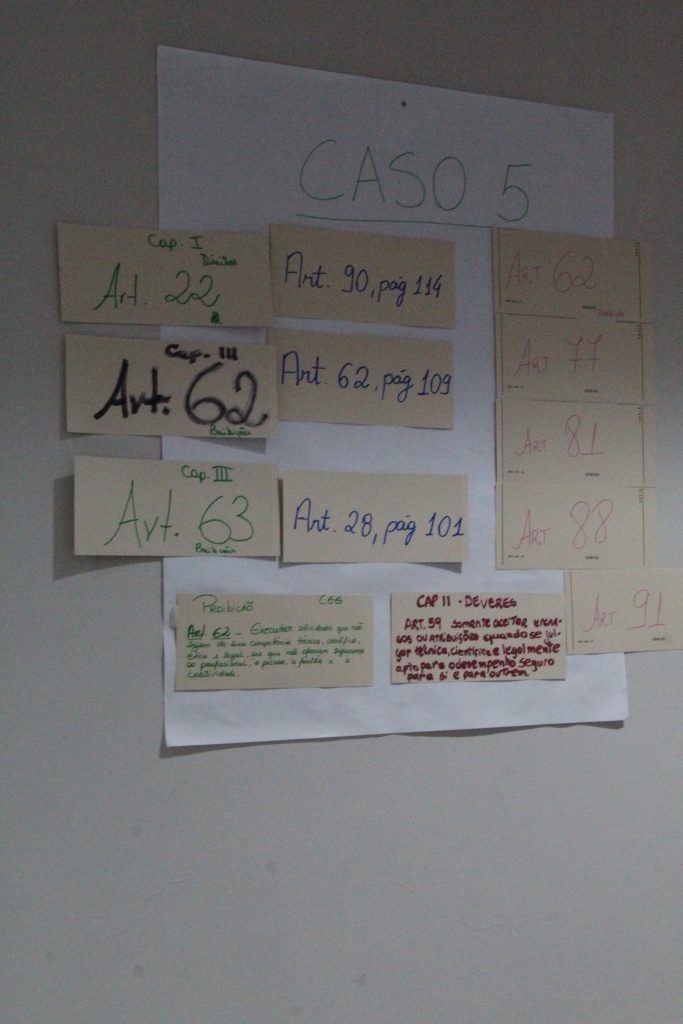 CASO 5
Cap. I
Direitos
Art. 22
Cap. III
Art. 62
Proibições
Cap. III
Art. 63
Proibições
Art. 90, pág 114
Art. 62, pág 109
Art. 28, pág 101
ART 62
ART 77
ART 81
ART 88
ART 91
PROIBICÃO
Art 62 - Executar atividades que não
sejam de sua competência técnica, científica,
ética e legal, ou que não ofereçam segurança
ao profissional, à pessoa, à família e à
coletividade.
CAP II - DEVERES
ART. 59 somente aceitar encar-
gos ou atribuições quando se jul-
gar técnica, científica e legalmente
apto para o desempenho seguro
para si e para outrem.